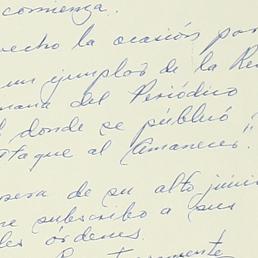 comienza.
vecho la ocasión par
un ejemplar de la Re
mana del Periódico
donde se publicó
taque al Amanecer."
sera de su alto júici
re subscribo a sus
les órdenes.